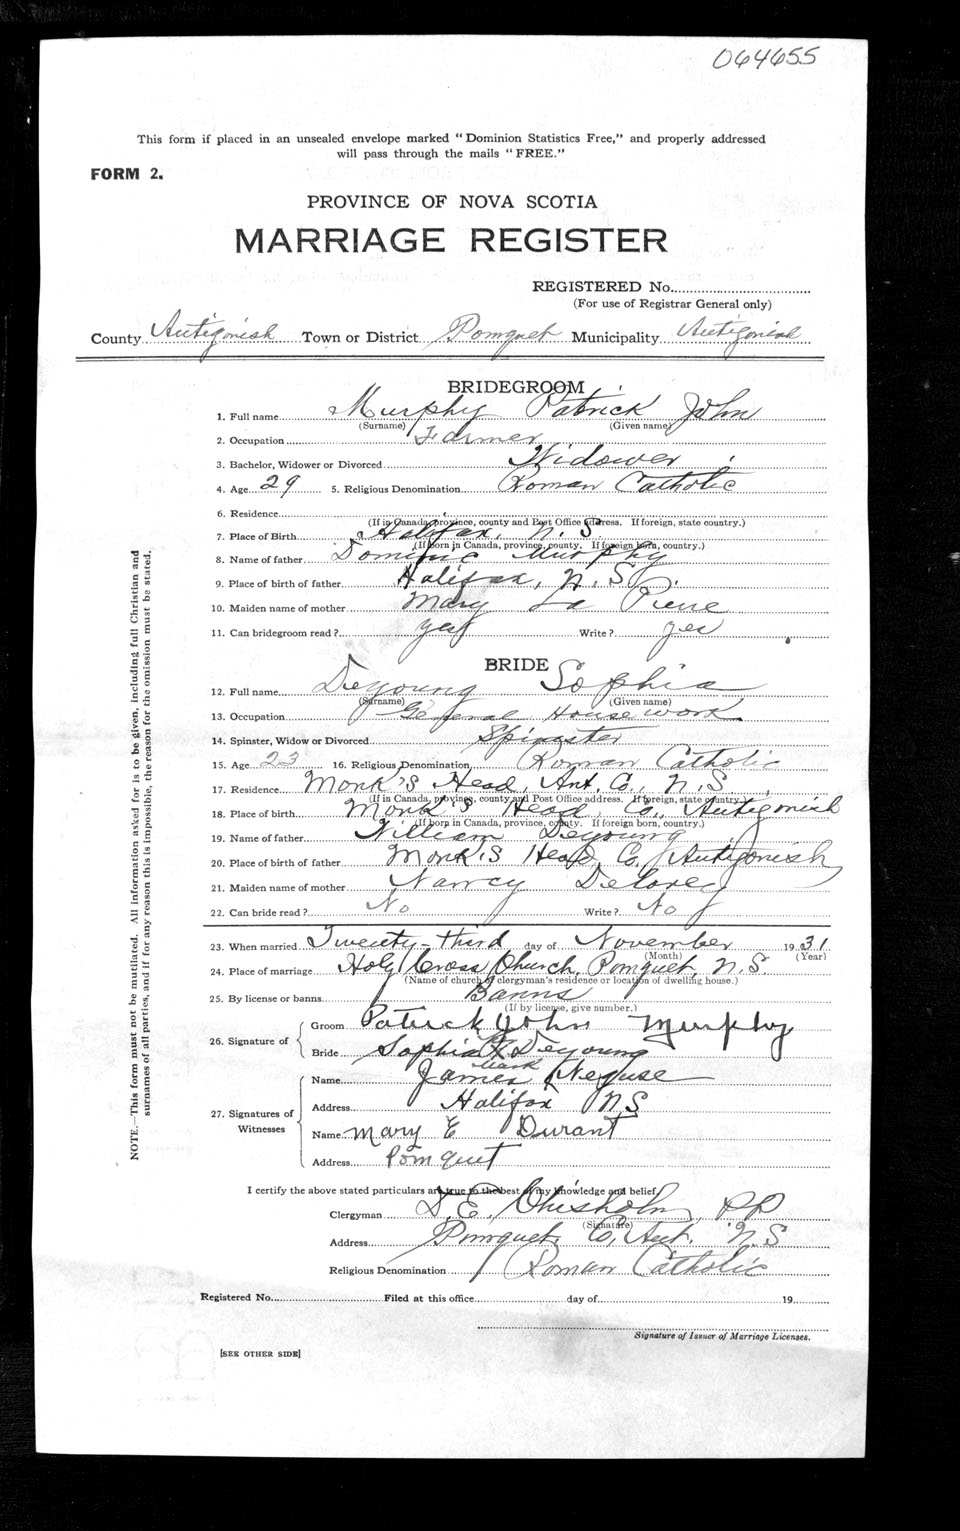 064655
This form if placed in an unsealed envelope marked "Dominion Statistics Free," and properly addressed
will pass through the mails "FREE."
FORM 2.
PROVINCE OF NOVA SCOTIA
MARRIAGE REGISTER
REGISTERED No.
(For use of Registrar General only)
County Antigonish Town or District Pomquet Municipality Antigonish
BRIDEGROOM
1. Full name Murphy Patrick John
(Surname) (Given name)
2. Occupation Farmer
3. Bachelor, Widower or Divorced Widower
4. Age 29 5. Religious Denomination Roman Catholic
6. Residence
(If in Canada, province, county and Post Office address. If foreign, state country.)
7. Place of Birth Halifax, N.S.
(If born in Canada, province, county. If foreign born, country.)
8. Name of father Dominic Murphy
9. Place of birth of father Halifax, N.S.
10. Maiden name of mother Mary La Pierre
11. Can bridegroom read? yes Write? yes
BRIDE
12. Full name Deyoung Sophia
(Surname) (Given name)
13. Occupation General Housework
14. Spinster, Widow or Divorced Spinster
15. Age 23 16. Religious Denomination Roman Catholic
17. Residence Monk's Head, Ant. Co., N.S.
(If in Canada, province, county and Post Office address. If foreign, state country.)
18. Place of birth Monk's Head, Co. Antigonish
(If born in Canada, province, county. If foreign born, country.)
19. Name of father William Deyoung
20. Place of birth of father Monk's Head, Co. Antigonish
21. Maiden name of mother Nancy Delorey
22. Can bride read? No Write? No
23. When married Twenty-third day of November 1931
(Month) (Year)
24. Place of marriage Holy Cross Church, Pomquet, N.S.
(Name of church, clergyman's residence or location of dwelling house.)
25. By license or banns Banns
(If by license, give number.)
26. Signature of
Groom Patrick John Murphy
Bride Sophia X Deyoung
mark
27. Signatures of Witnesses
Name James Neguse
Address Halifax N.S
Name Mary E Durant
Address Pomquet
I certify the above stated particulars are true to the best of my knowledge and belief.
Clergyman D.E. Chisholm, PP
(Signature)
Address Pomquet Co. Ant. N.S
Religious Denomination Roman Catholic
Registered No. Filed at this office day of 19
Signature of Issuer of Marriage Licenses.
[SEE OTHER SIDE]
NOTE.—This form must not be mutilated. All information asked for is to be given, including full Christian and
surnames of all parties, and if for any reason this is impossible, the reason for the omission must be stated.